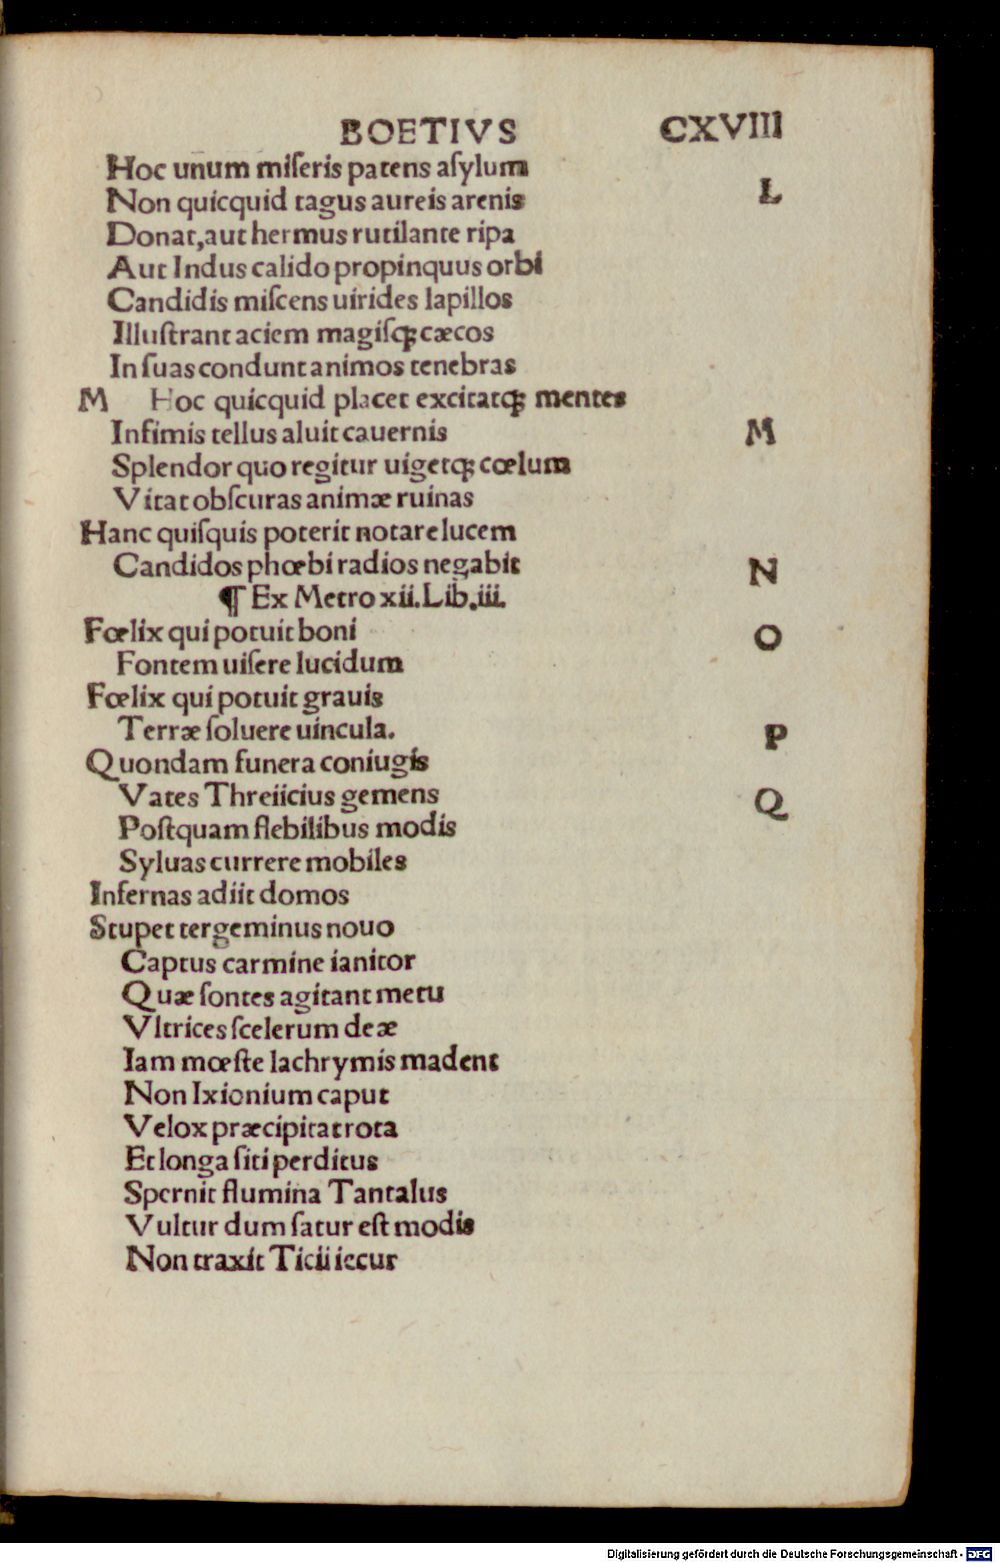 BOETIVS CXVIII
Hoc unum miſeris patens aſylum
Non quicquid tagus aureis arenis L
Donat,aut hermus rutilante ripa
Aut Indus calido propinquus orbi
Candidis miſcens uirides lapillos
Illuſtrant aciem magiſqꝫ cæcos
In ſuas condunt animos tenebras
M Hoc quicquid placet excitatqꝫ mentes
Infimis tellus aluit cauernis M
Splendor quo regitur uigetqꝫ cœlum
Vitat obſcuras animæ ruinas
Hanc quiſquis poterit notare lucem
Candidos phœbi radios negabit N
¶ Ex Metro xii.Lib.iii.
Fœlix qui potuit boni O
Fontem uiſere lucidum
Fœlix qui potuit grauis
Terræ ſoluere uincula. P
Quondam funera coniugis
Vates Threiicius gemens Q
Poſtquam flebilibus modis
Syluas currere mobiles
Infernas adiit domos
Stupet tergeminus nouo
Captus carmine ianitor
Quæ ſontes agitant metu
Vltrices ſcelerum deæ
Iam mœſte lachrymis madent
Non Ixionium caput
Velox præcipitat rota
Et longa ſiti perditus
Spernit flumina Tantalus
Vultur dum ſatur eſt modis
Non traxit Ticii iecur
Digitalisierung gefördert durch die Deutsche Forschungsgemeinschaft - DFG